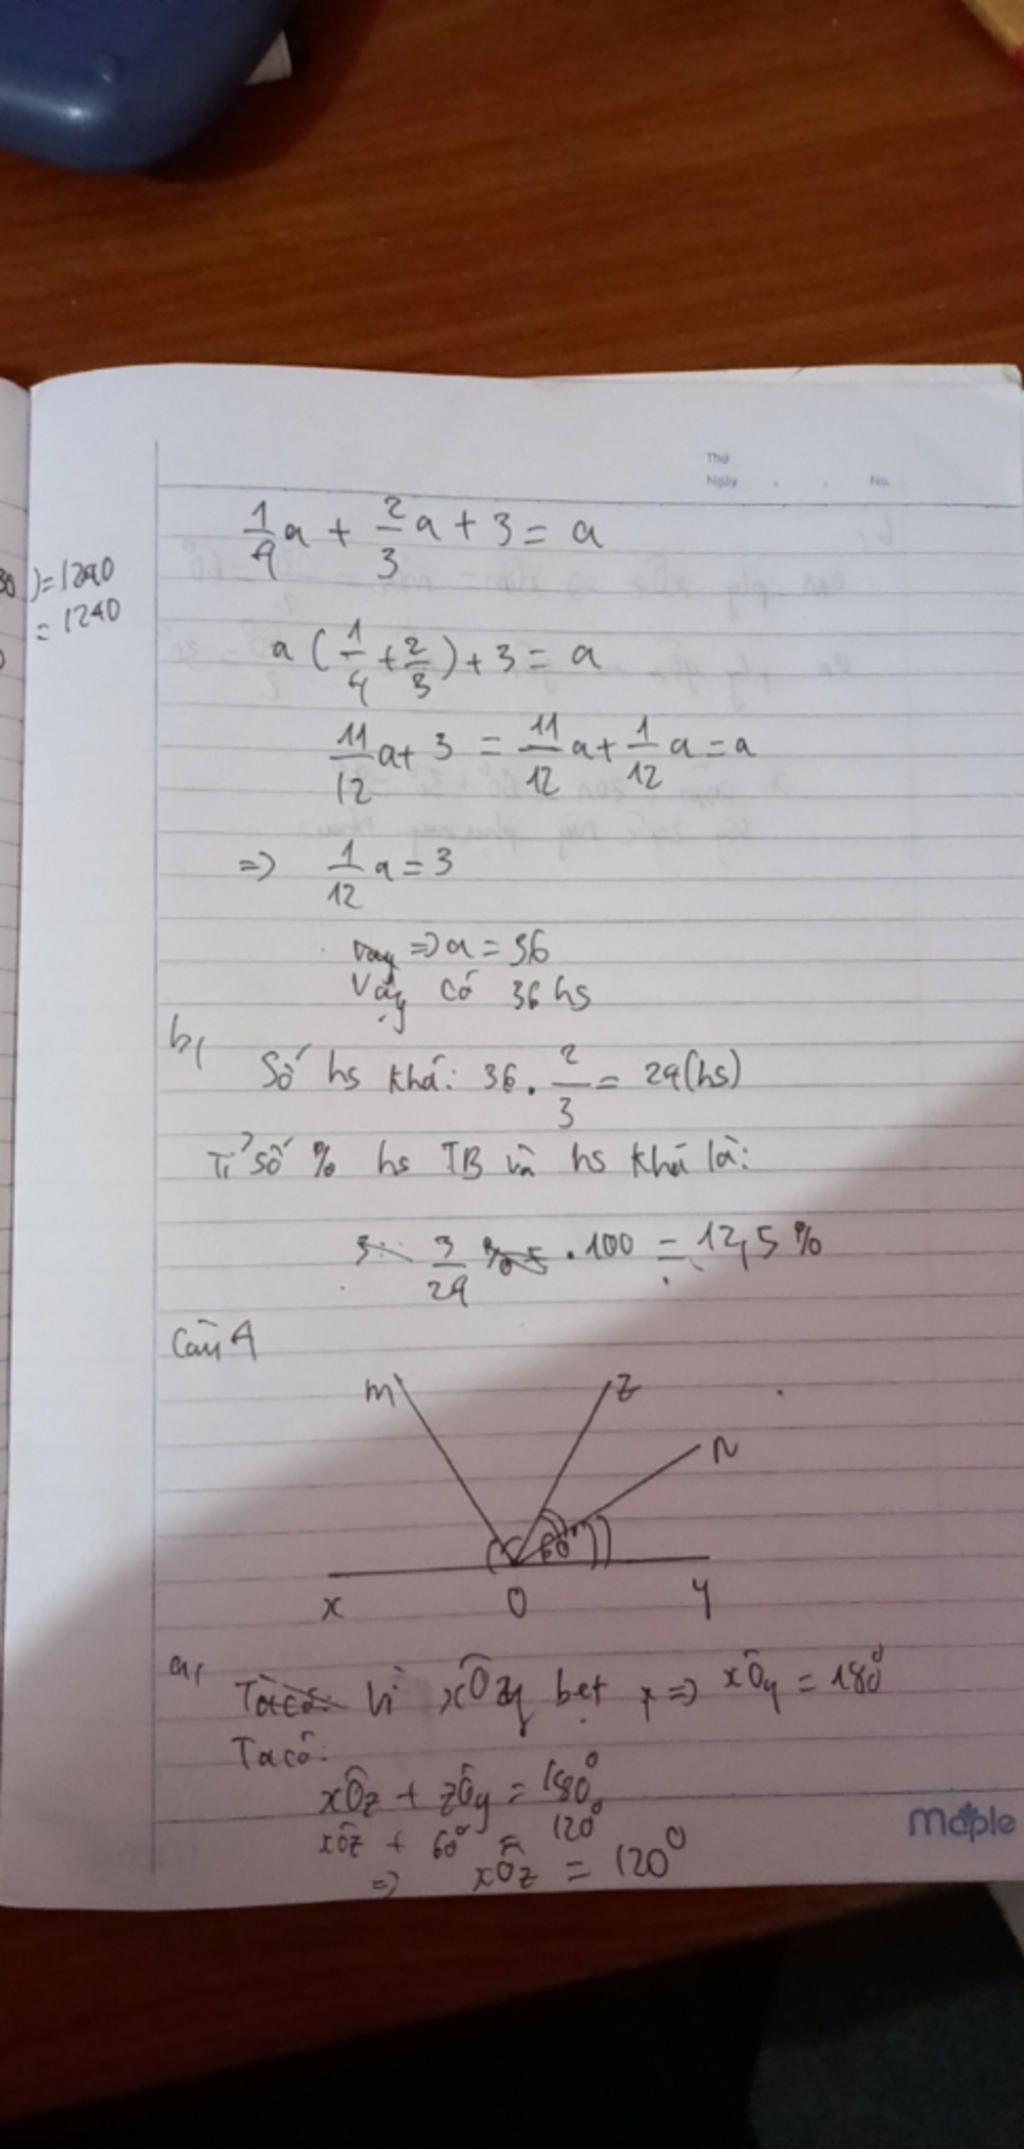 Thứ
Ngày . . No.
) = 1240
= 1240
1/4 a + 2/3 a + 3 = a
a ( 1/4 + 2/3 ) + 3 = a
11/12 a + 3 = 11/12 a + 1/12 a = a
=> 1/12 a = 3
=> a = 36
Vậy có 36 hs
b,
Số hs khá: 36 . 2/3 = 24 (hs)
Tỉ số % hs TB và hs khá là:
3/24 . 100 = 12,5 %
Câu 4
m z n
60°
x O y
a, Vì xÔy bẹt => xÔy = 180°
Ta có:
xÔz + zÔy = 180°
xÔz + 60° = 120°
=> xÔz = 120°
Maple